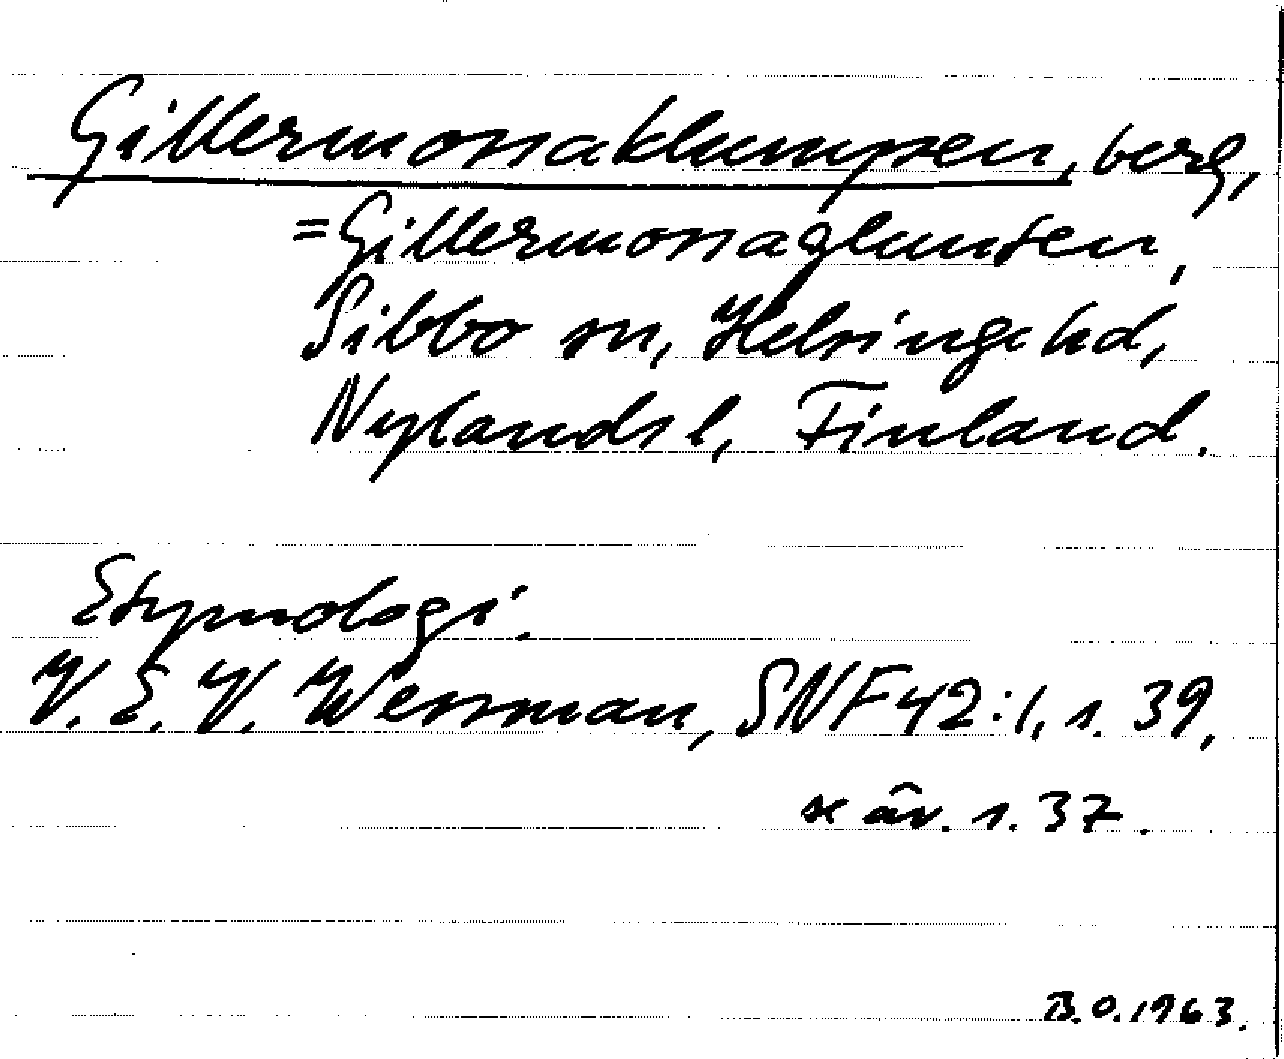 Gillermossaklumpsen, berg,
= Gillermossaglunten,
Sibbo sn, Helsinge hd,
Nylands l, Finland.
Etymologi.
V. E. V. Wessman, SNF 42:1, s. 39,
äv. s. 37.
B.O. 1963.